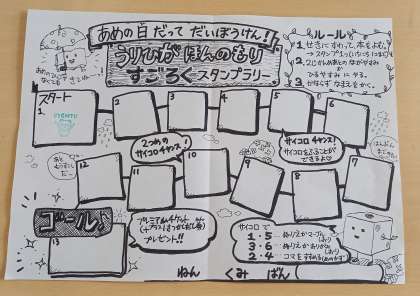 あめの日だってだいぼうけん!!
うりひがほんのもり
すごろくスタンプラリー
ルール
1. せきにすわって、本をよむ。
→スタンプ1つ(いちにち1まで)
2. 2じかんめあとのながやすみか
ひるやすみにやる。
3. かならずなまえをかく。
スタート
1
2
3
4
5
6
7
2つめの
サイコロチャンス!
サイコロチャンス!
サイコロをふることが
できるよ
12
11
10
9
8
ゴール♪
13
プレミアムチケット
プレゼント!!
サイコロで
1・5
3・6
2・4
コマをすすめる
ねん くみ ばん